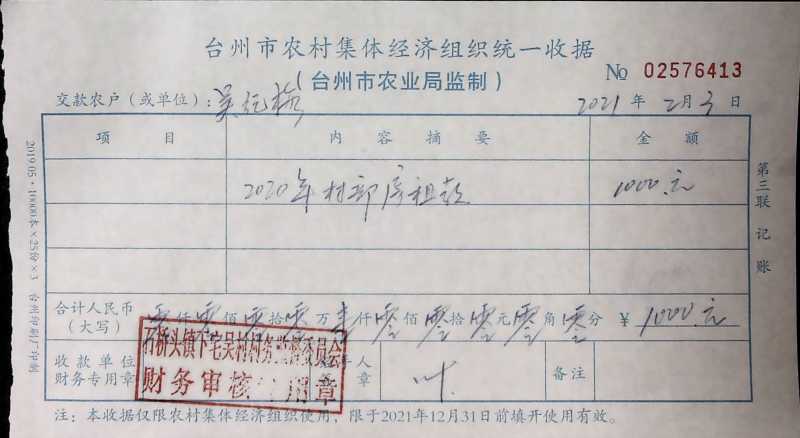 台州市农村集体经济组织统一收据
(台州市农业局监制)
№ 02576413
交款农户（或单位）：吴
2021年2月3日
项目 内容摘要 金额
2020年村部房租款 1000元
合计人民币（大写） 零仟零佰零拾零万壹仟零佰零拾零元零角零分 ¥1000元
石桥头镇下宅吴村村务监督委员会
财务审核专用章
收款单位财务专用章
人章
叶
备注
注：本收据仅限农村集体经济组织使用，限于2021年12月31日前填开使用有效。
第三联 记账
2019.05·10000本×25份×3 台州印刷厂印制